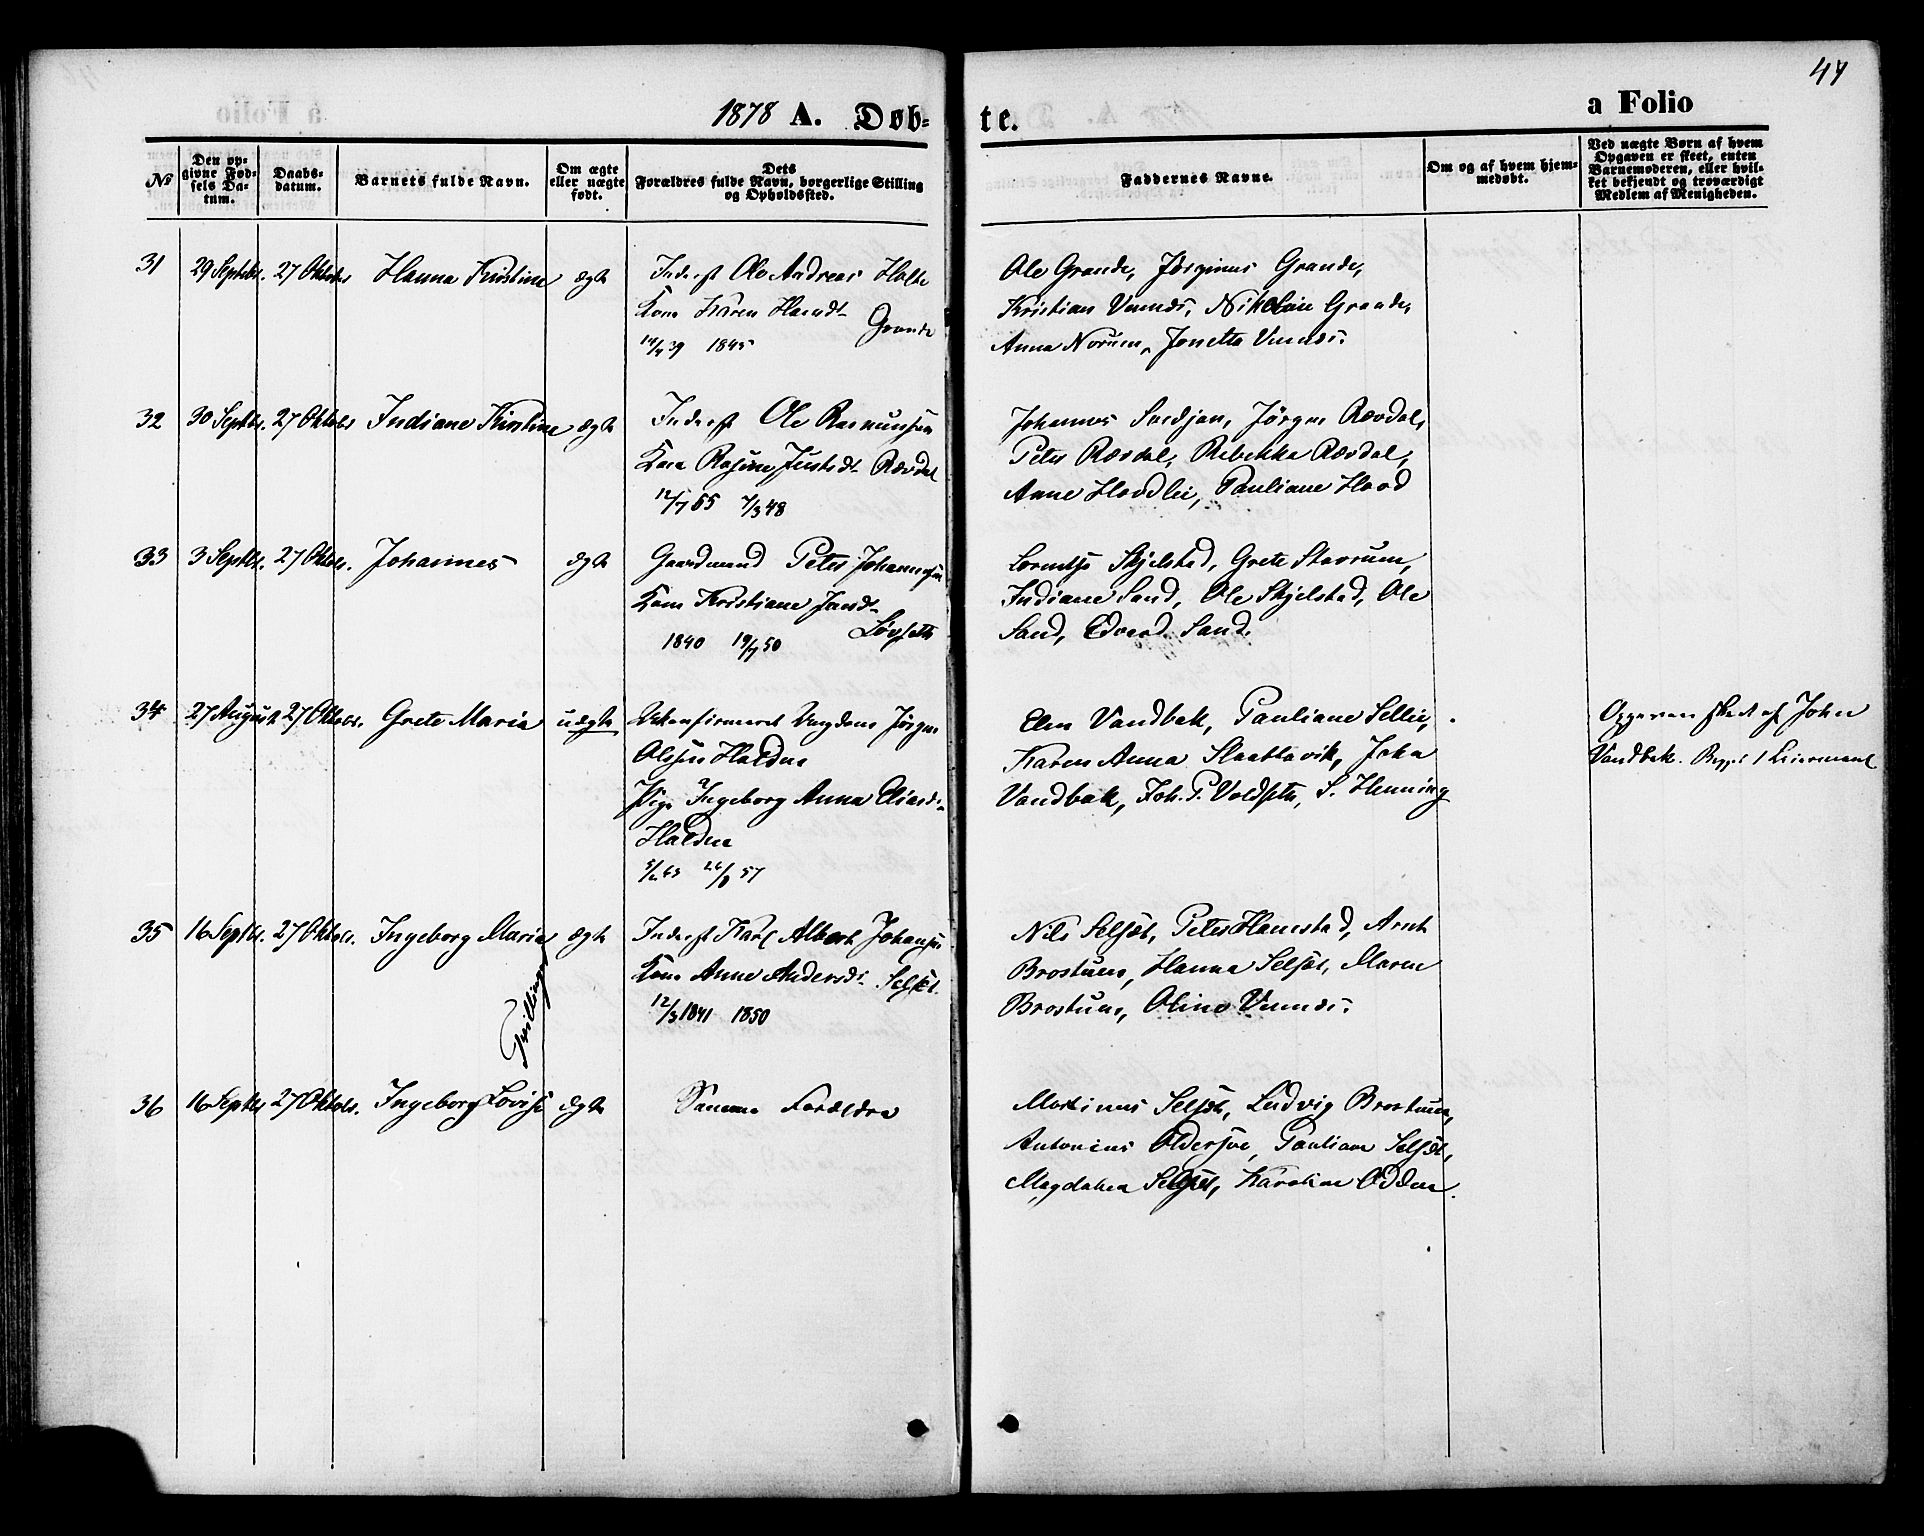 47
1878 A. Døb-
te.
a Folio
№
Den op-
givne Fød-
sels Da-
tum.
Daabs-
datum.
Barnets fulde Navn.
Om ægte
eller uægte
født.
Dets
Forældres fulde Navn, borgerlige Stilling
og Opholdssted.
Faddernes Navne.
Om og af hvem hjem-
medøbt.
Ved uægte Børn af hvem
Opgaven er skeet, enten
Barnemoderen, eller hvil-
ket bekjendt og troværdigt
Medlem af Menigheden.
31 29 Septbr. 27 Oktobr Hanna Kristine ægte
Inderst Ole Andreas Holte
Kone Karen Hansdt.
Grande
39 1845
Ole Grande, Jørginus Grande,
Kristian Vennes, Nikoline Grande,
Anna Norum, Jonetta Vennes.
32 30 Septbr. 27 Oktobr Indiane Kirstine ægte
Inderst Ole Rasmussen
Kone Rasjine Justsdt. Rævdal
12/7 55 7/3 48
Johannes Svedjan, Jørgen Rævdal,
Peter Rævdal, Rebekka Rævdal,
Anne Hovdlie, Pauliane Hovd
33 3 Septbr. 27 Oktobr. Johannes ægte
Gaardmand Peter Johannesen
Kone Kristiane Jensdt.
Løvseth
1840 19/7 50
Lorentse Skjelstad, Grete Stavrum,
Indiane Sand, Ole Skjelstad, Ole
Sand, Edvard Sand.
34 27 August 27 Oktobr. Grete Maria uægte
Ukonfirmeret Ungdom Jørgen
Olssen Halden
Pige Ingeborg Anna Eliasd.
Halden
57
Elen Vandbak, Pauliane Sellie,
Karen Anna Slaattavik, John
Vandbak, Joh. P. Voldseter, S. Henning
Opgaven skeet af John
Vandbak.
35 16 Septbr. 27 Oktobr. Ingeborg Marie ægte
Inderst Karl Albert Johansen
Kone Anne Andersdt. Selset.
12/3 1841 1850
Tvillinger
Nils Selset, Peter Hamstad, Arnt
Brostum, Hanna Selset, Maren
Brostum, Oline Vennes.
36 16 Septbr 27 Oktobr. Ingeborg Lovise ægte
Samme Forældre
Martinus Selset, Ludvig Brostum,
Antonius Oldersøe, Pauliane Selset,
Magdalena Selset, Karoline Odden.